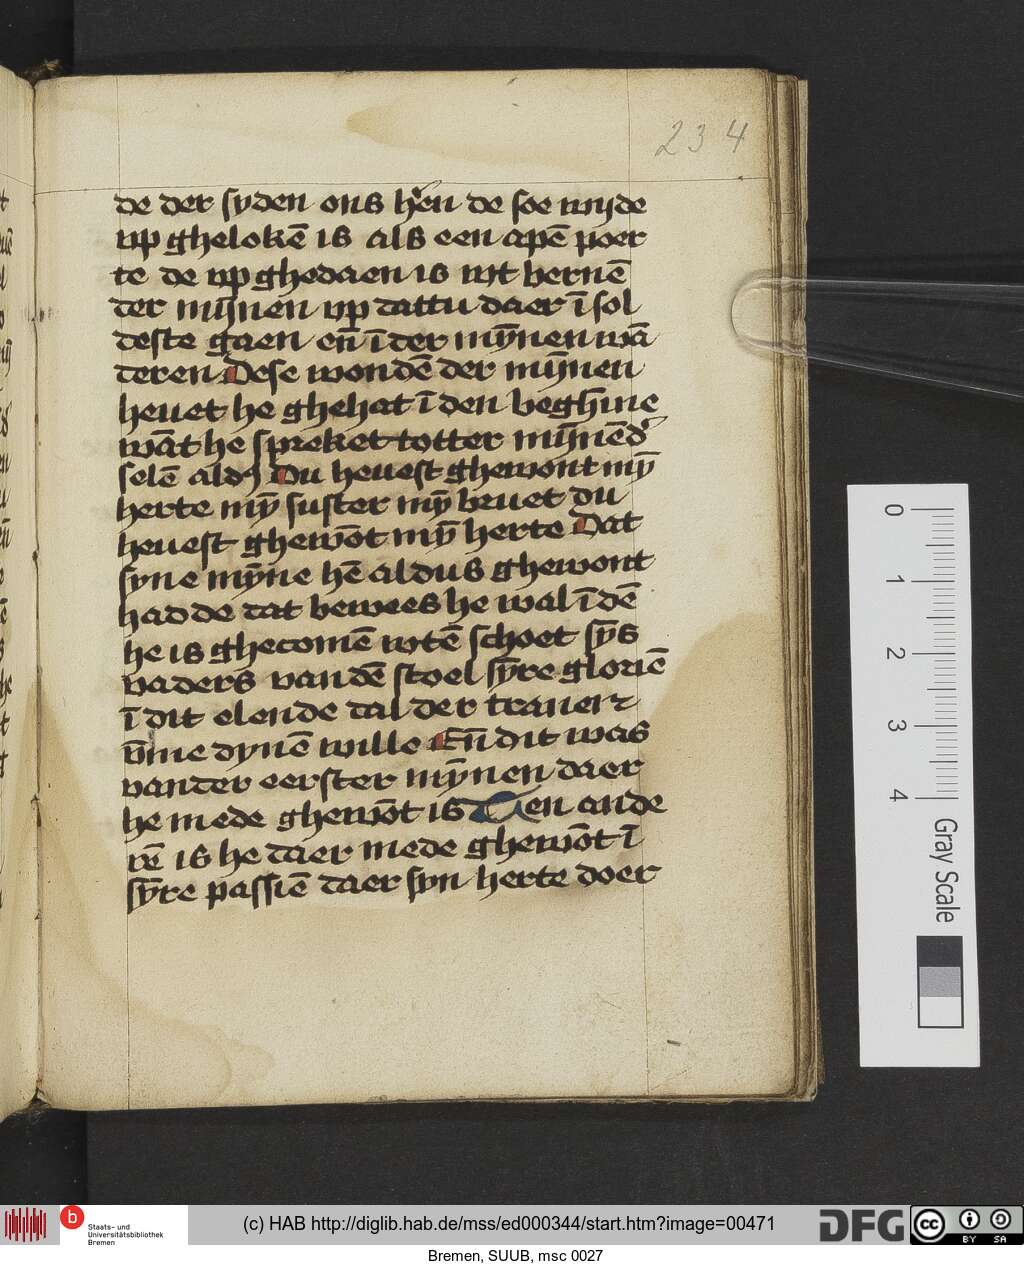 234
de der syden ons hꝰen de soe wijde
vp ghelokē is als een apē poer
te de vp ghedaen is wt bernē
der mȳnen vp dattu daer ī sol
deste gaen eñ ī der mȳnen wā
deren Dese wondē der mȳnen
heuet he ghehat ī den beghīne
wāt he spreket totter mȳnēdꝰ
selē aldꝰ Du heuest ghewont mȳ
herte mȳ suster mȳ bruet du
heuest ghewōt mȳ herte Dat
syne mȳne hē aldus ghewont
hadde dat bewees he wal ī dē
he is ghecomē wtē schoet sȳs
vaders van dē stoel sȳre gloriē
ī dit elende dal der tranen ꝛ
v̄me dynē wille Eñ dit was
vander eerster mȳnen daer
he mede ghewōt is Ten ande
rē is he daer mede ghewōt ī
sȳre passiē daer syn herte doer
0
1
2
3
4
Gray Scale
b
Staats- und
Universitätsbibliothek
Bremen
(c) HAB http://diglib.hab.de/mss/ed000344/start.htm?image=00471
DFG
cc
BY SA
Bremen, SUUB, msc 0027